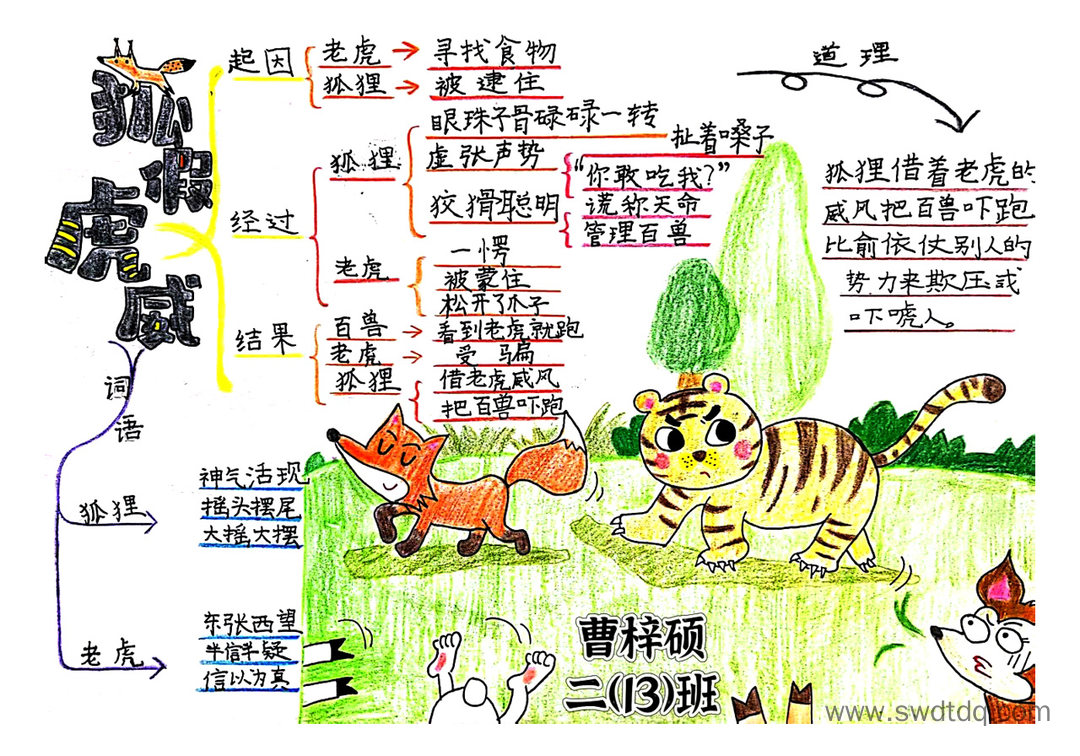 狐假虎威
起因
老虎→寻找食物
狐狸→被逮住
经过
狐狸
眼珠子骨碌碌一转
虚张声势
扯着嗓子
“你敢吃我?”
狡猾聪明
谎称天命
管理百兽
老虎
一愣
被蒙住
松开了爪子
结果
百兽→看到老虎就跑
老虎→受骗
狐狸
借老虎威风
把百兽吓跑
道理
狐狸借着老虎的
威风把百兽吓跑
比俞依仗别人的
势力来欺压或
吓唬人。
词语
狐狸
神气活现
摇头摆尾
大摇大摆
老虎
东张西望
半信半疑
信以为真
曹梓硕
二(13)班